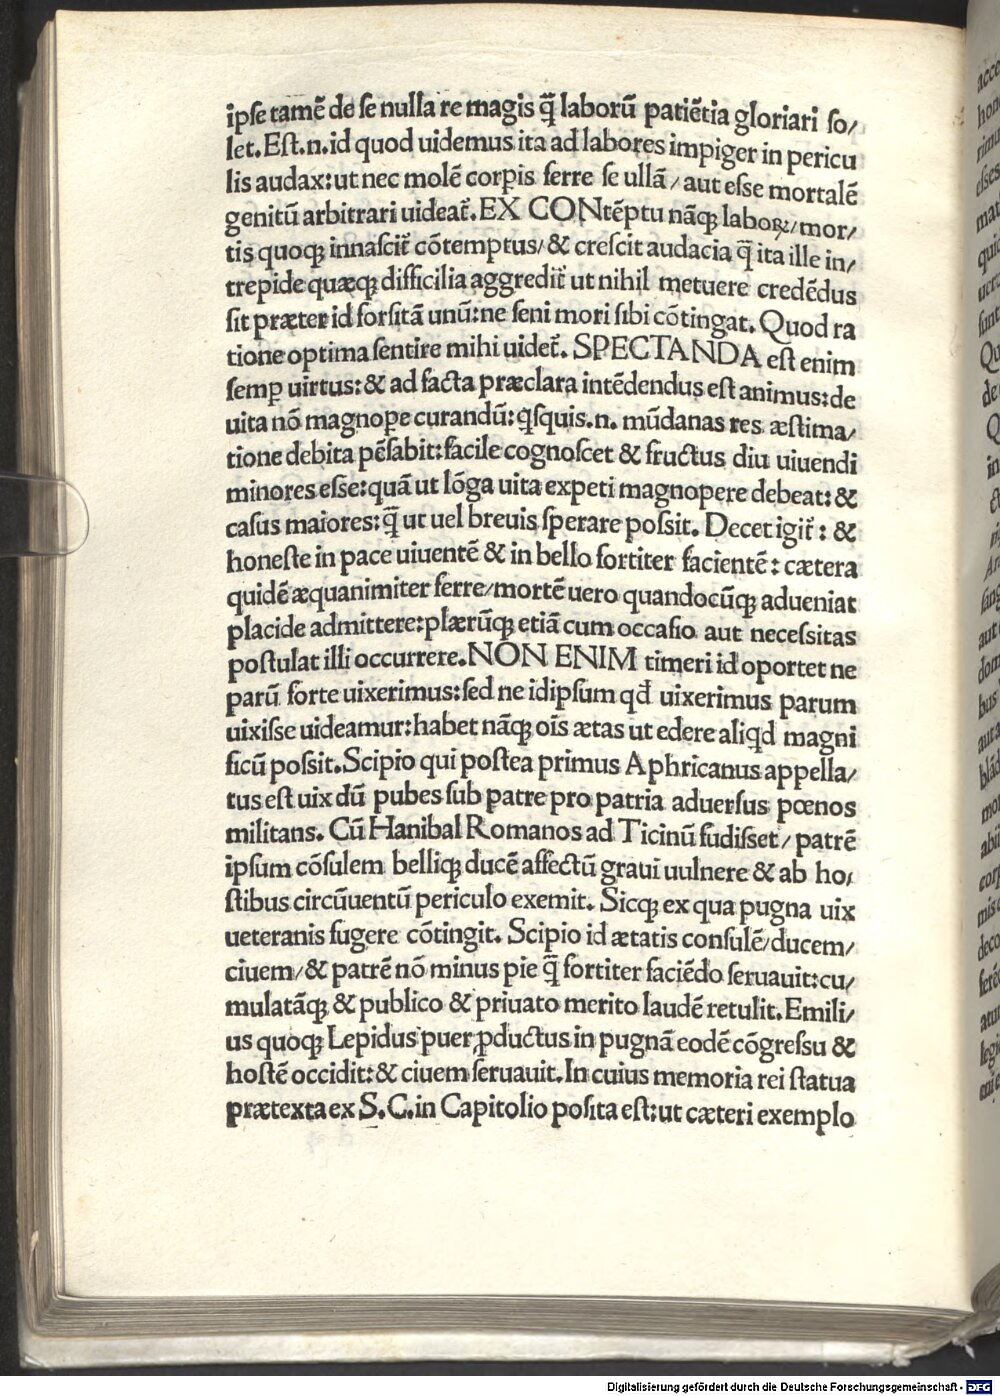 ipſe tamē de ſe nulla re magis q̄ laborū patiētia gloriari ſo/
let. Eſt .n. id quod uidemus ita ad labores impiger in pericu
lis audax: ut nec molē corꝑis ferre ſe ullā / aut eſſe mortalē
genitū arbitrari uideat̄. EX CONtēptu nāqꝫ laboꝝ / mor/
tis quoqꝫ innaſcit̄ cōtemptus / & creſcit audacia q̄ ita ille in/
trepide quæqꝫ difficilia aggredit̄ ut nihil metuere credēdus
ſit præter id forſitā unū: ne ſeni mori ſibi cōtingat. Quod ra
tione optima ſentire mihi uidet̄. SPECTANDA eſt enim
ſemꝑ uirtus: & ad facta præclara intēdendus eſt animus: de
uita nō magnoꝑe curandū: qſquis .n. mūdanas res æſtima/
tione debita pēſabit: facile cognoſcet & fructus diu uiuendi
minores eſſe: quā ut lōga uita expeti magnopere debeat: &
caſus maiores: q̄ ut uel breuis ſperare poſſit. Decet igit̄: &
honeſte in pace uiuentē & in bello fortiter facientē: cætera
quidē æquanimiter ferre / mortē uero quandocūqꝫ adueniat
placide admittere: plærūqꝫ etiā cum occaſio aut neceſſitas
poſtulat illi occurrere. NON ENIM timeri id oportet ne
parū forte uixerimus: ſed ne idipſum qd̄ uixerimus parum
uixiſſe uideamur: habet nāqꝫ oīs ætas ut edere aliqd magni
ficū poſſit. Scipio qui poſtea primus Aphricanus appella/
tus eſt uix dū pubes ſub patre pro patria aduerſus pœnos
militans. Cū Hanibal Romanos ad Ticinū fudiſſet / patrē
ipſum cōſulem belliqꝫ ducē affectū graui uulnere & ab ho/
ſtibus circūuentū periculo exemit. Sicqꝫ ex qua pugna uix
ueteranis fugere cōtingit. Scipio id ætatis conſulē / ducem /
ciuem / & patrē nō minus pie q̄ fortiter faciēdo ſeruauit: cu/
mulatāqꝫ & publico & priuato merito laudē retulit. Emili/
us quoqꝫ Lepidus puer ꝓductus in pugnā eodē cōgreſſu &
hoſtē occidit: & ciuem ſeruauit. In cuius memoria rei ſtatua
prætexta ex S. C. in Capitolio poſita eſt: ut cæteri exemplo
Digitalisierung gefördert durch die Deutsche Forschungsgemeinschaft - DFG